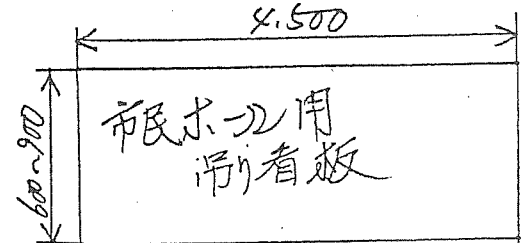 4.500
600~900
市民ホール用
吊り看板